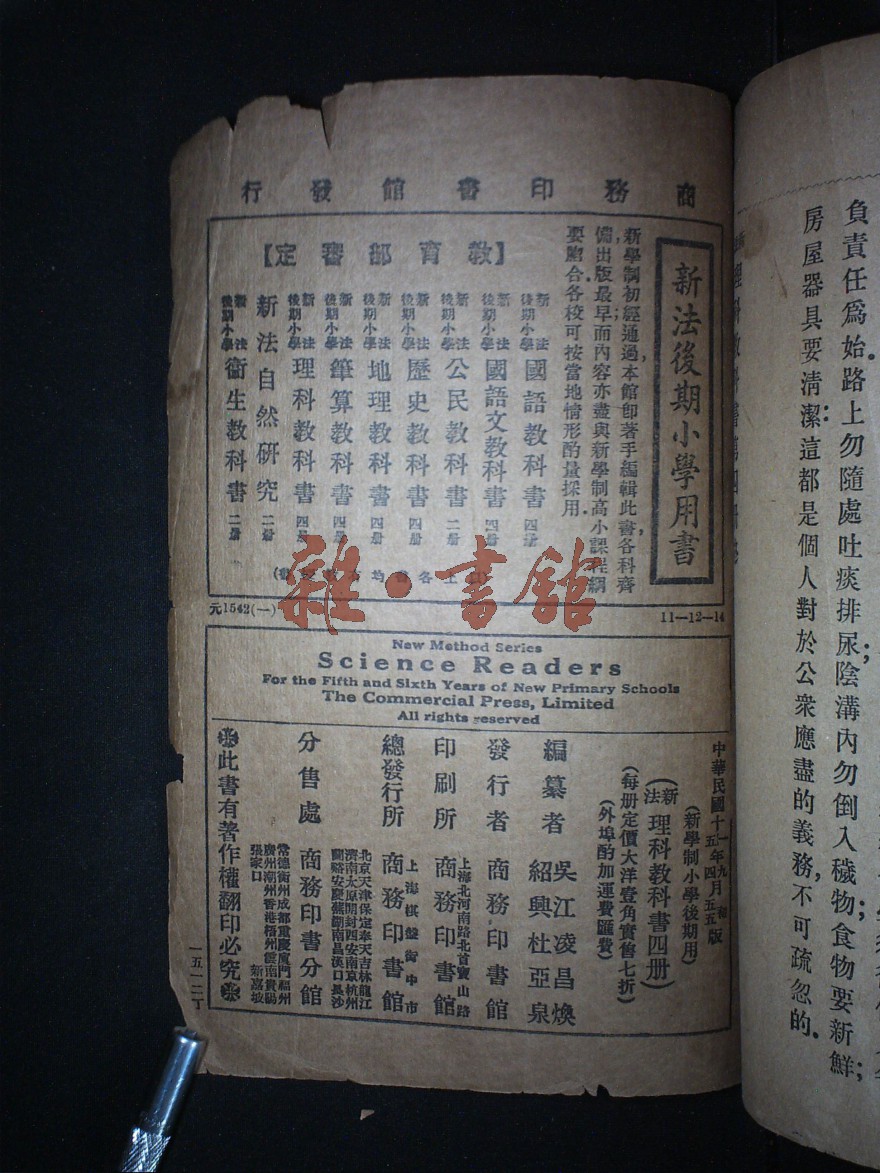 負責任爲始路上勿隨處吐痰排尿;陰溝內勿倒入穢物;食物要新鮮;
房屋器具要淸潔:這都是個人對於公衆應盡的義務,不可疏忽的.
商務印書館發行
新法後期小學用書
新學制初經通過,本館卽著手編輯此書,各科齊
備;出版最早,而內容亦盡與新學制高小課程綱
要脗合.各校可按當地情形酌量採用.
【教育部審定】
新法後期小學 國語教科書 四册
新法後期小學 國語文教科書 四册
新法後期小學 公民教科書 二册
新法後期小學 歷史教科書 四册
新法後期小學 地理教科書 四册
新法後期小學 筆算教科書 四册
新法後期小學 理科教科書 四册
新法自然研究 二册
新法後期小學 衞生教科書 二册
雜·書館
元1542(一)
11—12—14
New Method Series
Science Readers
For the Fifth and Sixth Years of New Primary Schools
The Commercial Press, Limited
All rights reserved
(新學制小學後期用)
(新法理科教科書四册)
(每册定價大洋壹角實售七折)
(外埠酌加運費匯費)
編纂者 吳江凌昌煥 紹興杜亞泉
發行者 商務印書館
印刷所 上海北河南路北首寶山路 商務印書館
總發行所 上海棋盤街中市 商務印書館
分售處 商務印書分館
北京天津保定奉天吉林龍江
濟南太原開封西安南京杭州
蘭谿安慶蕪湖南昌漢口長沙
常德衡州成都重慶廈門福州
廣州潮州香港梧州雲南貴陽
張家口 新嘉坡
此書有著作權翻印必究
一五一二丁